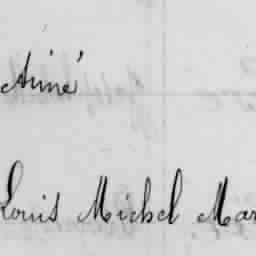 Aimé
Louis Michel Mar